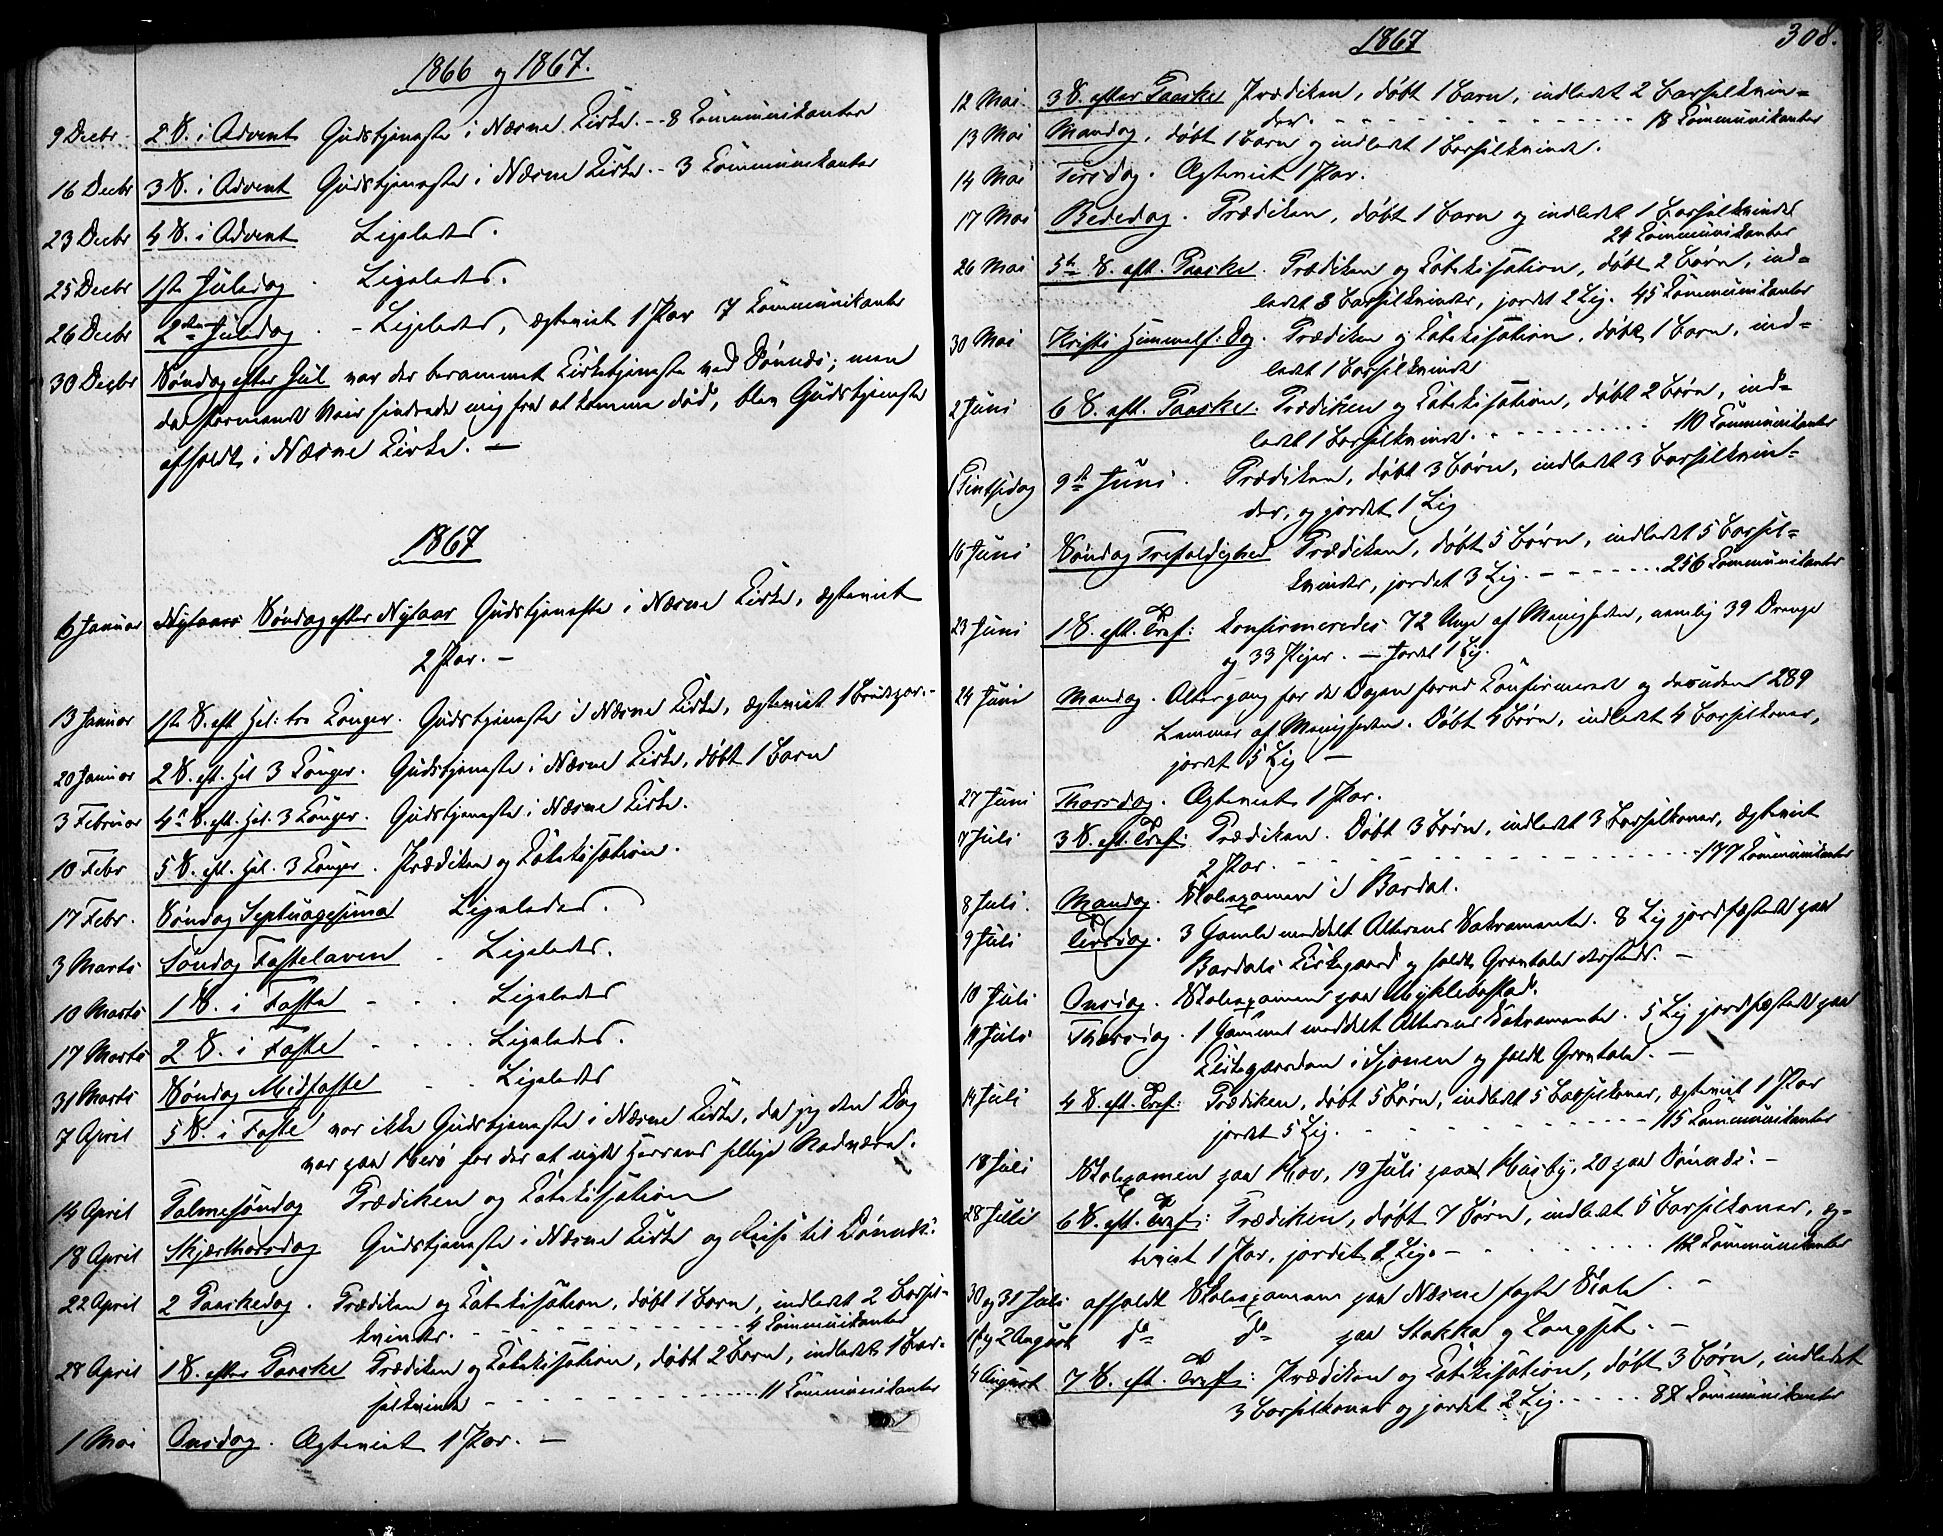 1866 og 1867.
9 Decbr. 2 S. i Advent Gudstjeneste i Næsne Kirke. - 8 Kommunikanter
16 Decbr 3 S. i Advent Gudstjeneste i Næsne Kirke. - 3 Kommunikanter
23 Decbr 4 S. i Advent Ligeledes.
25 Decbr 1ste Juledag. Ligeledes.
26 Decbr 2den Juledag. - Ligeledes, ægteviet 1 Par 7 Kommunikanter
30 Decbr Søndag efter Jul var der berammet Kirketjeneste ved Dønnæs; men
da stormende Veir hindrede mig fra at komme did, blev Gudstjeneste
afholdt i Næsne Kirke. —
1867
6 Januar Nytaars Søndag efter Nytaar Gudstjeneste i Næsne Kirke, ægteviet
2 Par. —
13 Januar 1ste S. eft Hel: tre Konger. Gudstjeneste i Næsne Kirke, ægteviet 1 Brudepar. -
20 Januar 2 S. eft. Hel 3 Konger. Gudstjeneste i Næsne Kirke, døbt 1 Barn
3 Februar 4de S. eft. Hel. 3 Konger. Gudstjeneste i Næsne Kirke.
10 Febr 5 S. eft. Hel. 3 Konger. Prædiken og Katekisation.
17 Febr. Søndag Septuagesima Ligeledes.
3 Marts Søndag Fastelaven. Ligeledes.
10 Marts 1 S. i Faste - . . Ligeledes
17 Marts 2 S. i Faste . . . Ligeledes.
31 Marts Søndag Midfaste . . Ligeledes
7 April 5 S. i Faste var ikke Gudstjeneste i Næsne Kirke, da jeg den Dag
var paa Herø for der at nyde Herrens hellige Nadvere.
14 April Palmesøndag Prædiken og Katekisation
18 April Skjærthorsdag Gudstjeneste i Næsne Kirke og Reise til Dønnæs.
22 April 2 Paaskedag. Prædiken og Katekisation, døbt 1 Barn, indledt 2 Barsel-
kvinder. - - - - - 4 Kommunikanter
28 April 1 S. efter Paaske Prædiken og Katekisation, døbt 2 Børn, indledt 1 Bar-
selkvinde - - - - - 11 Kommunikanter
1 Mai Onsdag. Ægteviet 1 Par. —
1867 308.
12 Mai. 3 S. efter Paaske Prædiken, døbt 1 Barn, indledt 2 Barselkvin-
der. - - - - - 18 Kommunikanter
13 Mai Mandag, døbt 1 Barn og indledt 1 Barselkvinde.
14 Mai Tirsdag. Ægteviet 1 Par.
17 Mai Bededag. Prædiken, døbt 1 Barn og indledt 1 Barselkvinde
24 Kommunikanter
26 Mai 5te S. eft. Paaske. Prædiken og Katekisation, døbt 2 Børn, ind-
ledt 3 Barselkvinder, jordet 2 Lig. 45 Kommunikanter
30 Mai Kristi Himmelf: Dag. Prædiken og Katekisation, døbt 1 Barn, ind-
ledt 1 Barselkvinde
2 Juni 6 S. eft. Paaske. Prædiken og Katekisation, døbt 2 Børn, ind-
ledt 1 Barselkvinde. - - - - 110 Kommunikanter
Pintsedag 9de Juni. Prædiken, døbt 3 Børn, indledt 3 Barselkvin-
der, og jordet 1 Lig
16 Juni Søndag Trefoldighed Prædiken, døbt 5 Børn, indledt 5 Barsel-
kvinder, jordet 3 Lig. - - - - 256 Kommunikanter
23 Juni 1 S. eft. Tref: Konfirmeredes 72 Unge af Menigheden, nemlig 39 Drenge
og 33 Piger. — Jordet 1 Lig.
24 Juni Mandag. Altergang for de Dagen forud Konfirmerede og desuden 289
Lemmer af Menigheden. Døbt 4 Børn, indledt 4 Barselkoner,
jordet 5 Lig —
27 Juni Thorsdag. Ægteviet 1 Par.
7 Juli 3 S. eft. Tref: Prædiken. Døbt 3 Børn, indledt 3 Barselkoner, ægteviet
2 Par. - - - - - 177 Kommunikanter
8 Juli. Mandag. Skolexamen i Bardal.
9 Juli Tirsdag. 3 Gamle meddelt Alterens Sakramente. 8 Lig jordfæstede paa
Bardals Kirkegaard og holdt Gravtale dersteds. —
10 Juli Onsdag. Skolexamen paa Myklebostad.
11 Juli Thorsdag. 1 Gammel meddelt Alterens Sakramente. 5 Lig jordfæstede paa
Kirkegaarden i Sjonen og holdt Gravtale. —
14 Juli 4 S. eft. Tref: Prædiken, døbt 5 Børn, indledt 5 Barselkoner, ægteviet 1 Par
jordet 5 Lig. - - - - - 115 Kommunikanter
18 Juli Skolexamen paa Hov, 19 Juli paa Husby, 20 paa Dønnæs. —
28 Juli 6 S. eft. Tref: Prædiken, døbt 7 Børn, indledt 5 Barselkoner, æg-
teviet 1 Par, jordet 2 Lig. - - - - 112 Kommunikanter
30 og 31 Juli afholdt Skolexamen paa Næsne faste Skole. —
1 og 2 August do do paa Stokka og Langset. —
4 August 7 S. eft. Tref: Prædiken og Katekisation, døbt 3 Børn, indledet
3 Barselkoner og jordet 2 Lig. - - - 87 Kommunikanter